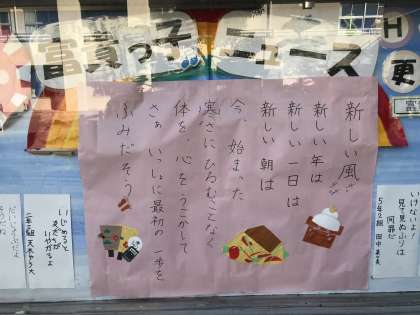 富貴っ子ニュース
H
更
富
新しい風
新しい年は
新しい一日は
新しい朝は
今、始まった
寒さにひるむことなく
体を、心をうごかして
さあ いっしょに最初の一歩を
ふみだそう
いけないよ!
見て見ぬふりは
同罪だ
5年2組
いじめると